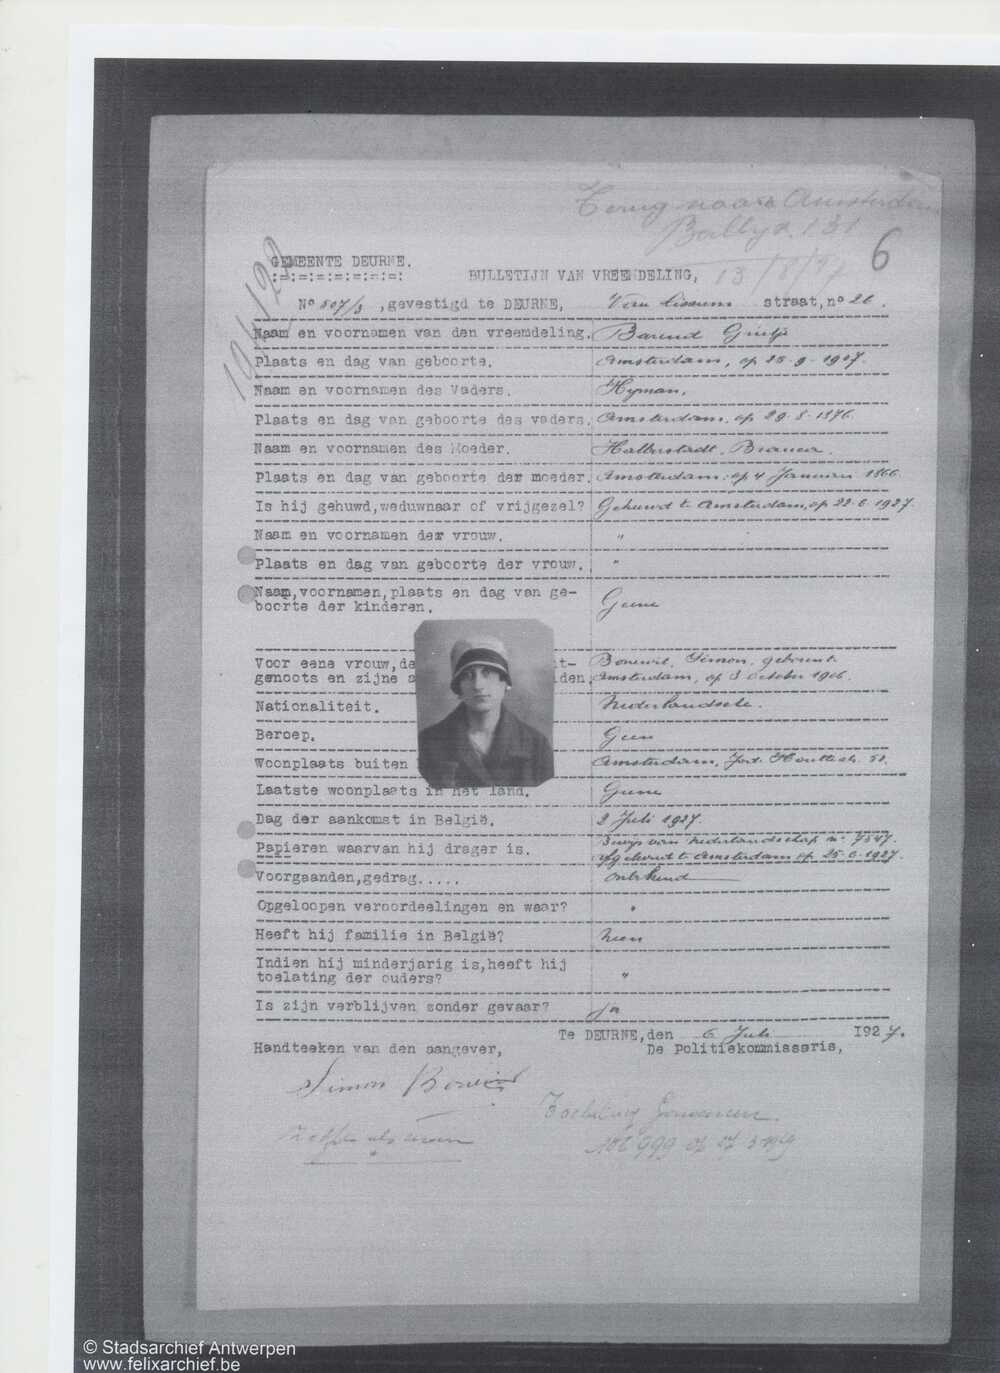 Terug naar Amsterdam
131
6
GEMEENTE DEURNE.
:=:=:=:=:=:=:=:
BULLETIJN VAN VREENDELING,
No 507/3 ,gevestigd te DEURNE, Van straat, no 26.
Naam en voornamen van den vreemdeling. Barend Grietje
Plaats en dag van geboorte. Amsterdam, op 25-9-1907.
Naam en voornamen des Vaders. Hyman.
Plaats en dag van geboorte des vaders. Amsterdam, op 29-8-1876.
Naam en voornamen des Moeder. Halberstadt, Branca.
Plaats en dag van geboorte der moeder. Amsterdam, op 4 Januari 1866
Is hij gehuwd,weduwnaar of vrijgezel? Gehuwd te Amsterdam, op 22-6-1927.
Naam en voornamen der vrouw. "
Plaats en dag van geboorte der vrouw. "
Naam,voornamen,plaats en dag van ge-
boorte der kinderen. Geene
Voor eene vrouw,de t- Bonewit, Simon, geboren te
genoots en zijne iden. Amsterdam, op 3 October 1906.
Nationaliteit. Nederlandsche.
Beroep. Geen
Woonplaats buiten Amsterdam, Jod. Houttuin. 51.
Laatste woonplaats in het land. Geene
Dag der aankomst in België. 2 Juli 1927.
Papieren waarvan hij drager is. Bewijs van Nederlandschap no 7547
afgeleverd te Amsterdam op 25-6-1927.
Voorgaanden,gedrag..... onbekend
Opgeloopen veroordeelingen en waar? "
Heeft hij familie in België? Neen
Indien hij minderjarig is,heeft hij
toelating der ouders? "
Is zijn verblijven zonder gevaar? Ja
Te DEURNE,den 6 Juli 1927.
Handteeken van den aangever, De Politiekommissaris,
Simon Bonewit
© Stadsarchief Antwerpen
www.felixarchief.be